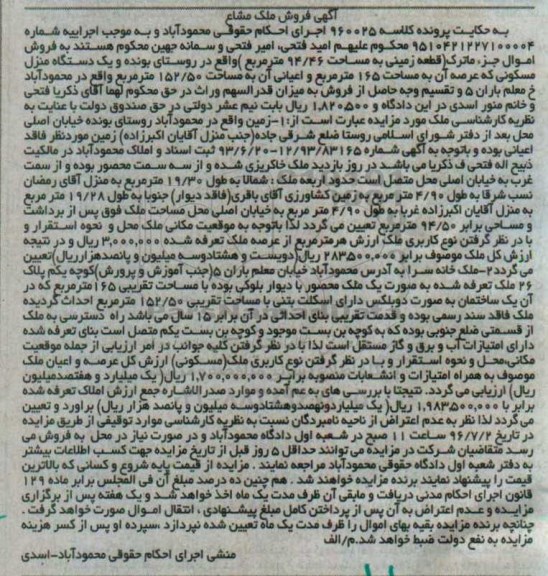 آگهی فروش ملک مشاع
به حکایت پرونده کلاسه ۹۶۰۰۲۵ اجرای احکام حقوقی محمودآباد و به موجب اجراییه شماره
۹۵۱۰۴۲۱۲۲۷۱۰۰۰۰۴ محکوم علیهم امید فتحی، امیر فتحی و سمانه جهین محکوم هستند به فروش
اموال جزء ماترک(قطعه زمینی به مساحت ۹۴/۴۶ مترمربع )واقع در روستای بونده و یک دستگاه منزل
مسکونی که عرصه آن به مساحت ۱۶۵ مترمربع و اعیانی آن به مساحت ۱۵۲/۵۰ مترمربع واقع در محمودآباد
خ معلم باران ۵ و تقسیم وجه حاصل از فروش به میزان قدرالسهم وراث در حق محکوم لهما آقای ذکریا فتحی
و خانم منور اسدی در این دادگاه و ۱,۸۲۰,۵۰۰ ریال بابت نیم عشر دولتی در حق صندوق دولت با عنایت به
نظریه کارشناسی ملک مورد مزایده عبارت است از:۱-زمین واقع در محمودآباد روستای بونده خیابان اصلی
محل بعد از دفتر شورای اسلامی روستا ضلع شرقی جاده(جنب منزل آقایان اکبرزاده) زمین موردنظر فاقد
اعیانی بوده و باتوجه به آگهی شماره ۱۲/۹۳/۸۳۱۶۵-۹۳/۶/۲۰ ثبت اسناد و املاک محمودآباد در مالکیت
ذبیح اله فتحی ف ذکریا می باشد در روز بازدید ملک خاکریزی شده و از سه سمت محصور بوده و از سمت
غرب به خیابان اصلی محل متصل است حدود اربعه ملک : شمالا به طول ۱۹/۳۰ مترمربع به منزل آقای رمضان
نسب شرقا به طول ۴/۹۰ متر مربع به زمین کشاورزی آقای باقری(فاقد دیوار) جنوبا به طول ۱۹/۲۸ متر مربع
به منزل آقایان اکبرزاده غربا به طول ۴/۹۰ متر مربع به خیابان اصلی محل مساحت ملک فوق پس از برداشت
و مساحی برابر ۹۴/۵۰ مترمربع تعیین می گردد لذا باتوجه به موقعیت مکانی ملک محل و نحوه استقرار و
با در نظر گرفتن نوع کاربری ملک ارزش هرمترمربع از عرصه ملک تعرفه شده ۳,۰۰۰,۰۰۰ ریال و در نتیجه
ارزش کل ملک موصوف برابر ۲۸۳۵۰۰,۰۰۰ ریال(دویست و هشتادوسه میلیون و پانصدهزارریال)تعیین
می گردد۲-ملک خانه سرا به آدرس محمودآباد خیابان معلم باران ۵(جنب آموزش و پرورش)کوچه یکم پلاک
۲۶ ملک تعرفه شده به صورت یک ملک محصور با دیوار بلوکی بوده با مساحت تقریبی ۱۶۵ مترمربع که در
آن یک ساختمان به صورت دوبلکس دارای اسکلت بتنی با مساحت تقریبی ۱۵۲/۵۰ مترمربع احداث گردیده
ملک فاقد سند رسمی بوده و قدمت تقریبی بنای احداثی در آن برابر ۱۵ سال می باشد راه دسترسی به ملک
از قسمتی ضلع جنوبی بوده که به کوچه بن بست موجود و کوچه بن بست یکم متصل است بنای تعرفه شده
دارای امتیازات آب و برق و گاز مستقل است لذا با در نظر گرفتن کلیه جوانب در امر ارزیابی از جمله موقعیت
مکانی،محل و نحوه استقرار و با در نظر گرفتن نوع کاربری ملک(مسکونی) ارزش کل عرصه و اعیان ملک
موصوف به همراه امتیازات و انشعابات منصوبه برابر ۱,۷۰۰,۰۰۰,۰۰۰ ریال( یک میلیارد و هفتصدمیلیون
ریال) ارزیابی می گردد. نتیجتا با بررسی های به عم آمده و موارد صدرالاشاره جمع ارزش املاک تعرفه شده
برابر با ۱,۹۸۳۵۰۰,۰۰۰ ریال( یک میلیاردونهصدوهشتادوسه میلیون و پانصد هزار ریال) براورد و تعیین
می گردد لذا نظر به عدم اعتراض از ناحیه نامبردگان نسبت به نظریه کارشناسی موارد توقیفی از طریق مزایده
در تاریخ ۹۶/۷/۲ ساعت ۱۱ صبح در شعبه اول دادگاه محمودآباد و در صورت نیاز در محل به فروش می
رسد متقاضیان شرکت در مزایده می توانند حداقل ۵ روز قبل از تاریخ مزایده جهت کسب اطلاعات بیشتر
به دفتر شعبه اول دادگاه حقوقی محمودآباد مراجعه نمایند . مزایده از قیمت پایه شروع و کسانی که بالاترین
قیمت را پیشنهاد نمایند برنده مزایده خواهند شد . هم چنین ده درصد مبلغ آن فی المجلس برابر ماده ۱۲۹
قانون اجرای احکام مدنی دریافت و مابقی آن ظرف مدت یک ماه اخذ خواهد شد و یک هفته پس از برگزاری
مزایده و عدم اعتراض به آن پس از پرداختن کامل مبلغ پیشنهادی ، انتقال اموال صورت خواهد گرفت .
چنانچه برنده مزایده بقیه بهای اموال را ظرف مدت یک ماه تعیین شده نپردازد ،سپرده او پس از کسر هزینه
مزایده به نفع دولت ضبط خواهد شد.م/الف
منشی اجرای احکام حقوقی محمودآباد-اسدی